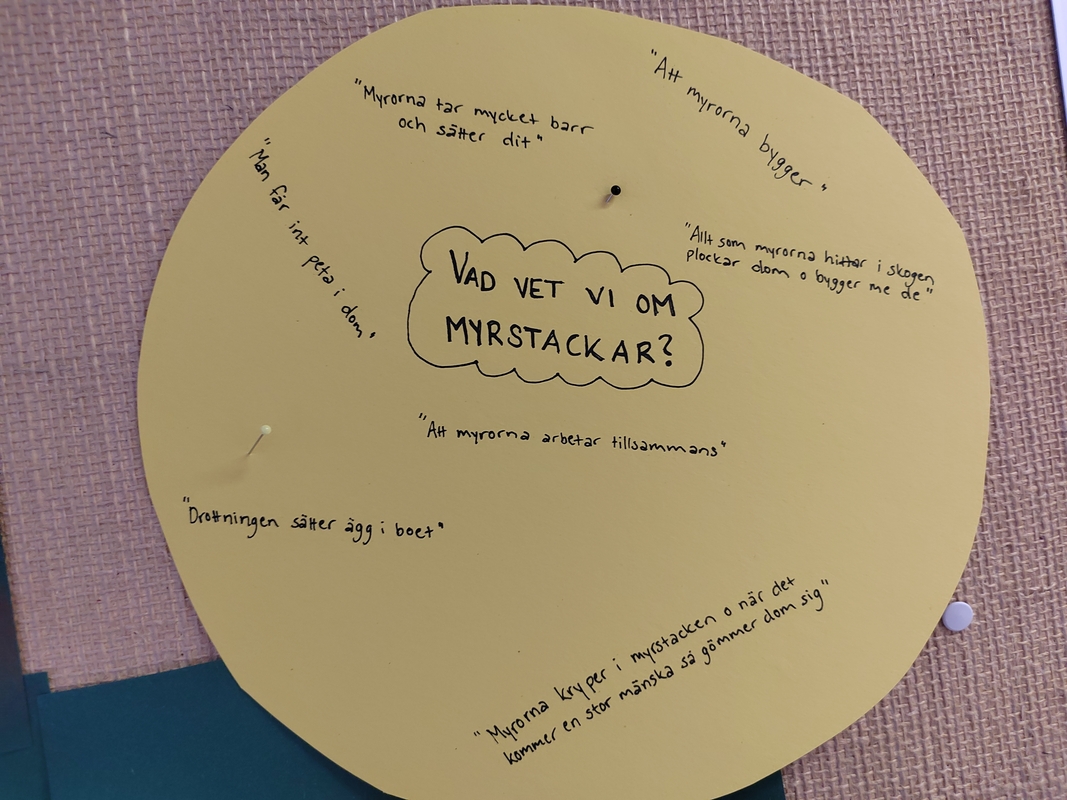 "Myrorna tar mycket barr
och sätter dit"
"Att myrorna bygger"
"Man får int peta i dom"
"Allt som myrorna hittar i skogen
plockar dom o bygger me de"
VAD VET VI OM
MYRSTACKAR?
"Att myrorna arbetar tillsammans"
"Drottningen sätter ägg i boet"
"Myrorna kryper i myrstacken o när det
kommer en stor mänska så gömmer dom sig"